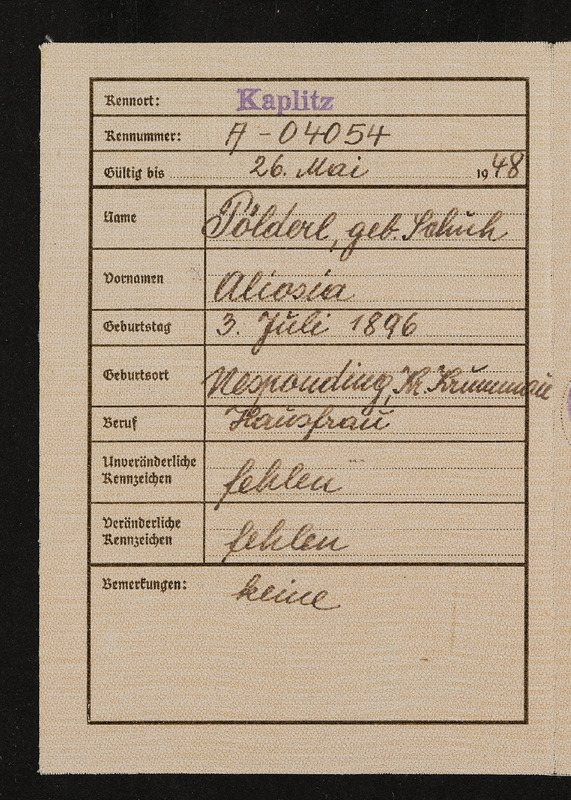 Kennort: Kaplitz
Kennummer: A-04054
Gültig bis 26. Mai 1948
Name Pölderl, geb. Schuh
Vornamen Aliosia
Geburtstag 3. Juli 1896
Geburtsort Nesponding, Kr. Krummau
Beruf Hausfrau
Unveränderliche
Kennzeichen fehlen
Veränderliche
Kennzeichen fehlen
Bemerkungen: keine